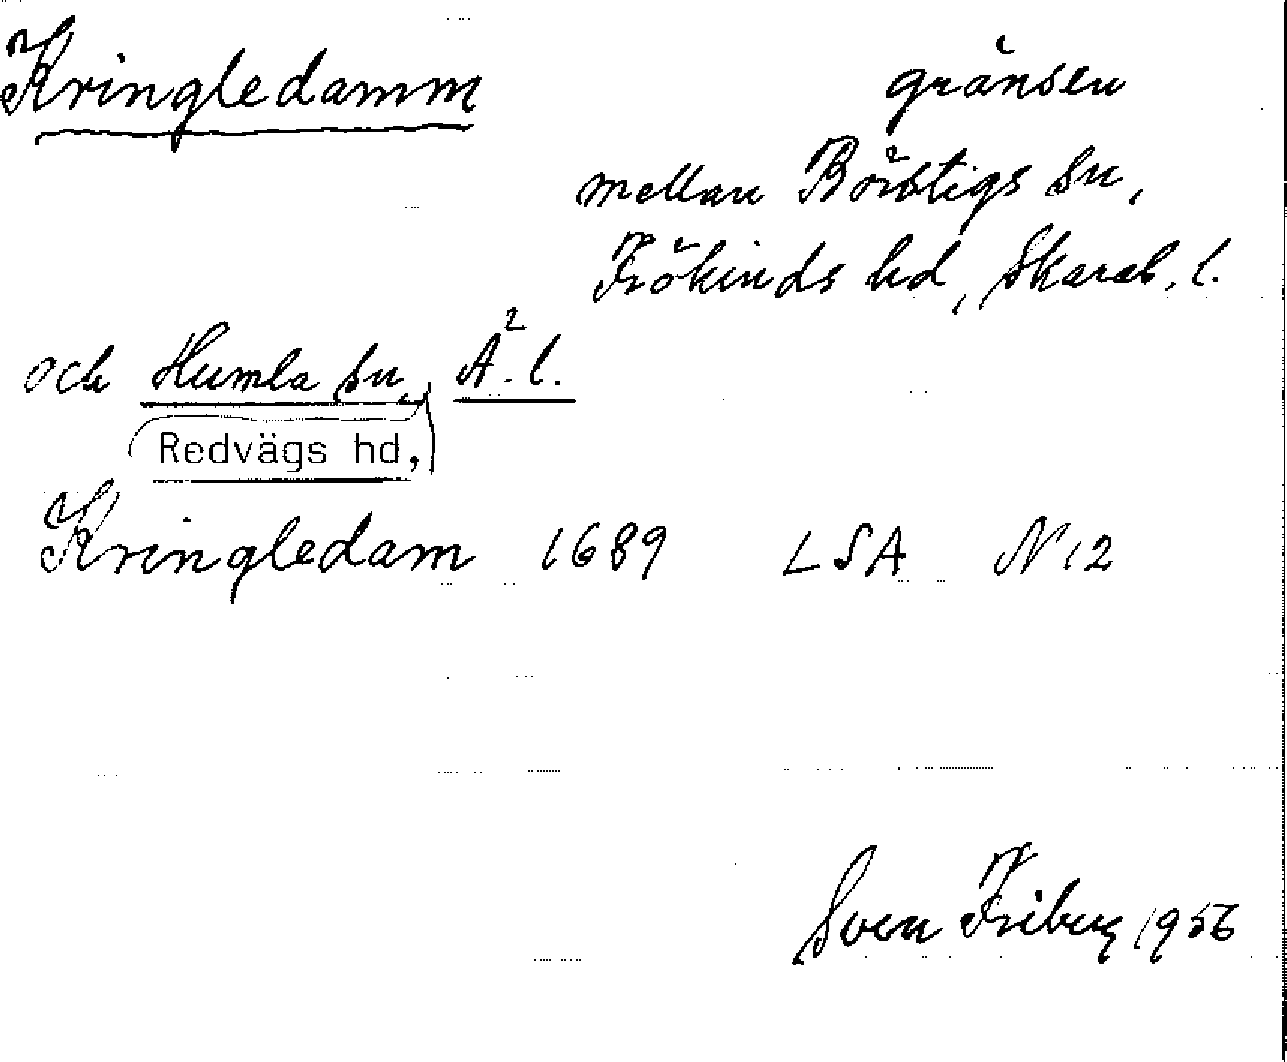 Kringledamm gränsen
mellan Börstigs sn,
Frökinds hd, Skarab. l.
och Humla sn, Ä. l.
Redvägs hd,
Kringledam 1689 LSA N 12
Sven Friberg 1956